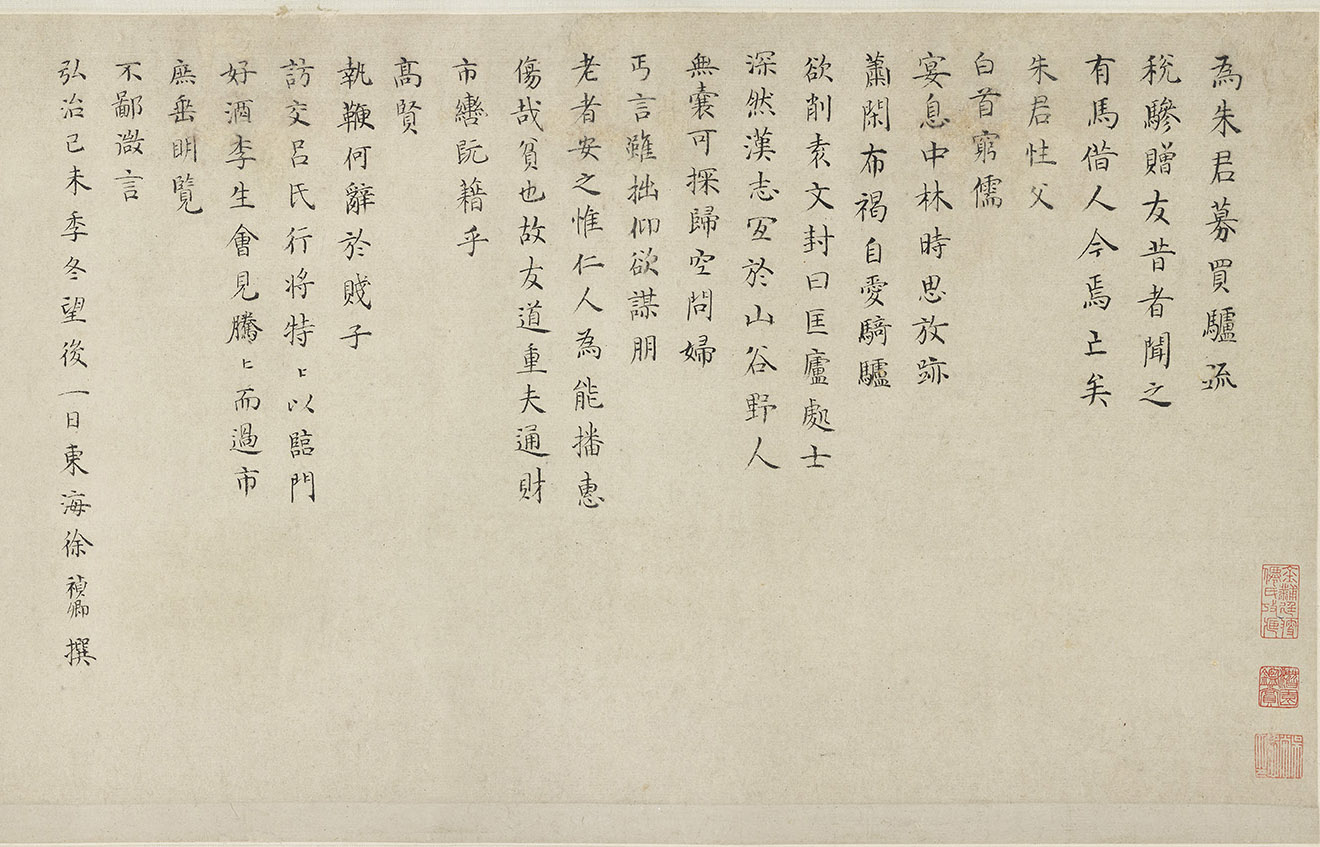 為朱君募買驢疏
稅驂贈友昔者聞之
有馬借人今焉亡矣
朱君性父
白首窮儒
宴息中林時思放跡
蕭閑布褐自愛騎驢
欲削袁文封曰匡廬處士
深然漢志冝於山谷野人
無囊可探歸空問婦
丐言雖拙仰欲謀朋
老者安之惟仁人為能播惠
傷哉貧也故友道重夫通財
市轡阮籍乎
高賢
執鞭何辭於賤子
訪交呂氏行將特〻以臨門
好酒李生會見騰〻而過市
庶垂明覽
不鄙微言
弘治己未季冬望後一日東海徐禎卿撰